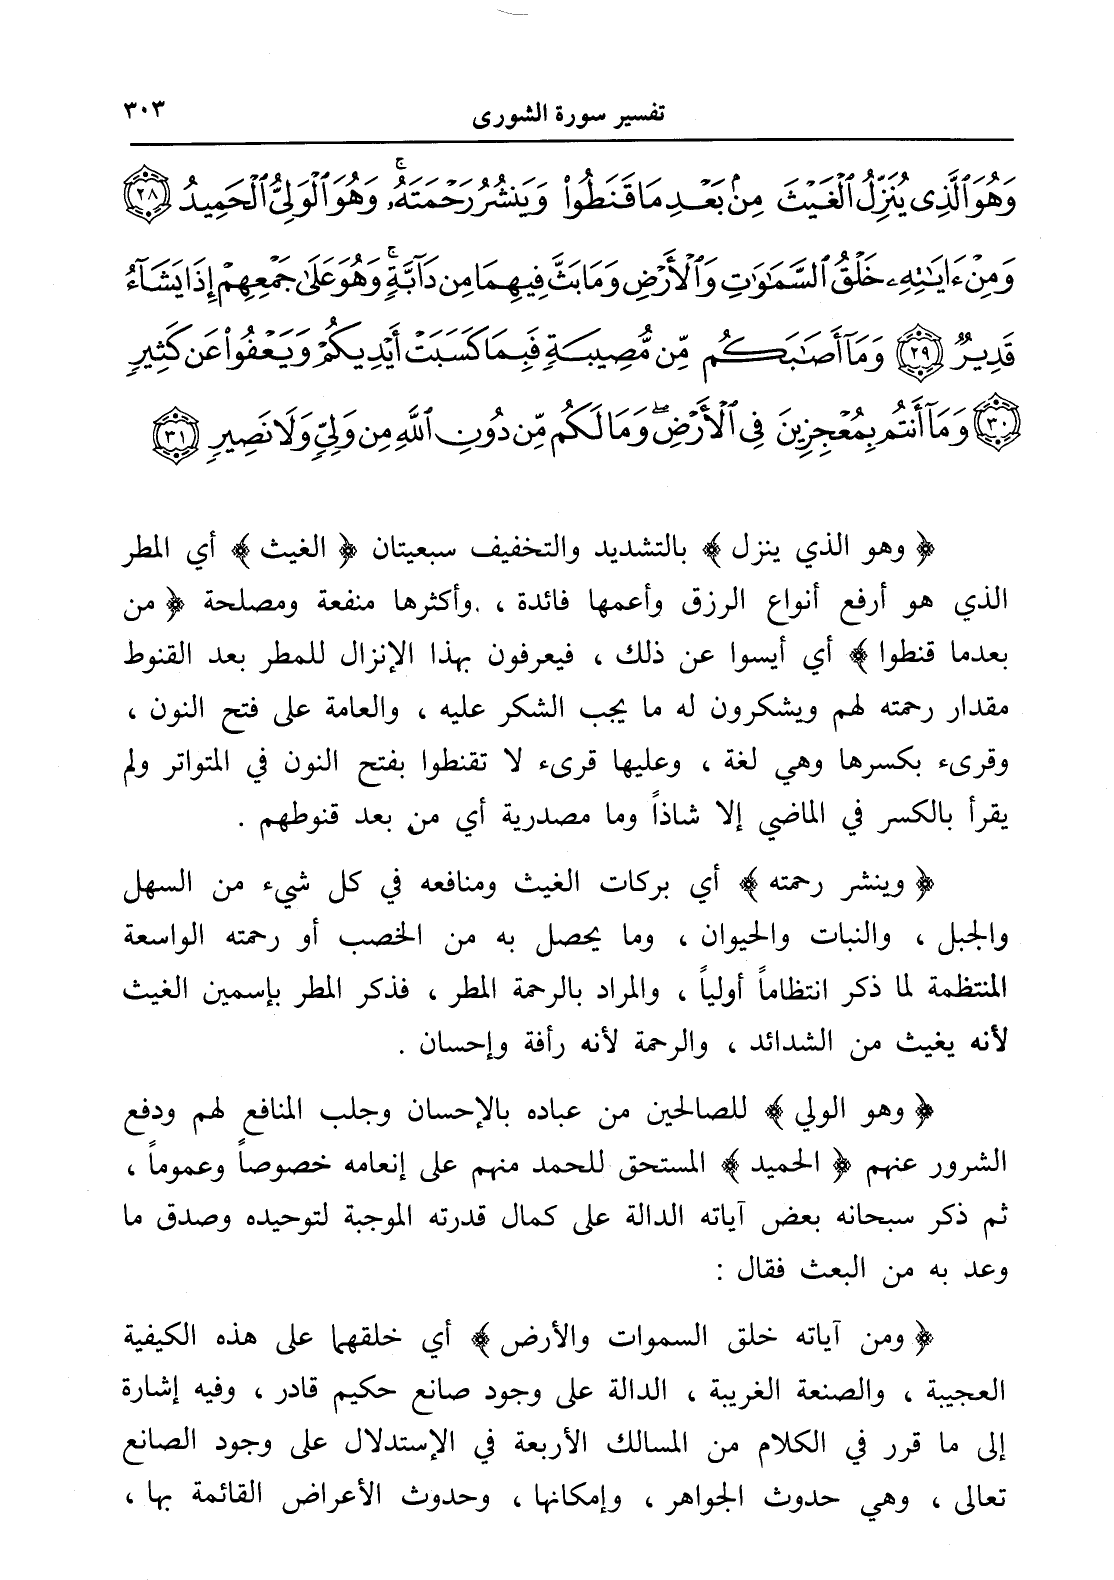 تفسير سورة الشورى ٣٠٣
وَهُوَ ٱلَّذِى يُنَزِّلُ ٱلْغَيْثَ مِنۢ بَعْدِ مَا قَنَطُوا۟ وَيَنشُرُ رَحْمَتَهُۥۚ وَهُوَ ٱلْوَلِىُّ ٱلْحَمِيدُ ﴿٢٨﴾
وَمِنْ ءَايَـٰتِهِۦ خَلْقُ ٱلسَّمَـٰوَٰتِ وَٱلْأَرْضِ وَمَا بَثَّ فِيهِمَا مِن دَآبَّةٍۚ وَهُوَ عَلَىٰ جَمْعِهِمْ إِذَا يَشَآءُ
قَدِيرٌ ﴿٢٩﴾ وَمَآ أَصَـٰبَكُم مِّن مُّصِيبَةٍ فَبِمَا كَسَبَتْ أَيْدِيكُمْ وَيَعْفُوا۟ عَن كَثِيرٍ
﴿٣٠﴾ وَمَآ أَنتُم بِمُعْجِزِينَ فِى ٱلْأَرْضِۖ وَمَا لَكُم مِّن دُونِ ٱللَّهِ مِن وَلِىٍّ وَلَا نَصِيرٍ ﴿٣١﴾
﴿ وهو الذي ينزل ﴾ بالتشديد والتخفيف سبعيتان ﴿ الغيث ﴾ أي المطر
الذي هو أرفع أنواع الرزق وأعمها فائدة ، .وأكثرها منفعة ومصلحة ﴿ من
بعدما قنطوا ﴾ أي أيسوا عن ذلك ، فيعرفون بهذا الإنزال للمطر بعد القنوط
مقدار رحمته لهم ويشكرون له ما يجب الشكر عليه ، والعامة على فتح النون ،
وقرىء بكسرها وهي لغة ، وعليها قرىء لا تقنطوا بفتح النون في المتواتر ولم
يقرأ بالكسر في الماضي إلا شاذاً وما مصدرية أي من بعد قنوطهم .
﴿ وينشر رحمته ﴾ أي بركات الغيث ومنافعه في كل شيء من السهل
والجبل ، والنبات والحيوان ، وما يحصل به من الخصب أو رحمته الواسعة
المنتظمة لما ذكر انتظاماً أولياً ، والمراد بالرحمة المطر ، فذكر المطر بإسمين الغيث
لأنه يغيث من الشدائد ، والرحمة لأنه رأفة وإحسان .
﴿ وهو الولي ﴾ للصالحين من عباده بالإحسان وجلب المنافع لهم ودفع
الشرور عنهم ﴿ الحميد ﴾ المستحق للحمد منهم على إنعامه خصوصاً وعموماً ،
ثم ذكر سبحانه بعض آياته الدالة على كمال قدرته الموجبة لتوحيده وصدق ما
وعد به من البعث فقال :
﴿ ومن آياته خلق السموات والأرض ﴾ أي خلقهما على هذه الكيفية
العجيبة ، والصنعة الغريبة ، الدالة على وجود صانع حكيم قادر ، وفيه إشارة
إلى ما قرر في الكلام من المسالك الأربعة في الإستدلال على وجود الصانع
تعالى ، وهي حدوث الجواهر ، وإمكانها ، وحدوث الأعراض القائمة بها ،